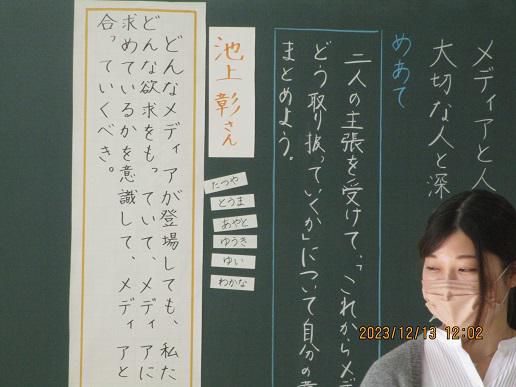 メディアと人
大切な人と深
めあて
二人の主張を受けて、「これからメデ
どう取り扱っていくか」について自分の
まとめよう。
池上彰さん
たつや
とうま
あやと
ゆうき
ゆい
わかな
どんなメディアが登場しても、私た
どんな欲求をもっていて、メディアに
求めているかを意識して、メディアと
合っていくべき。
2023/12/13 12:02